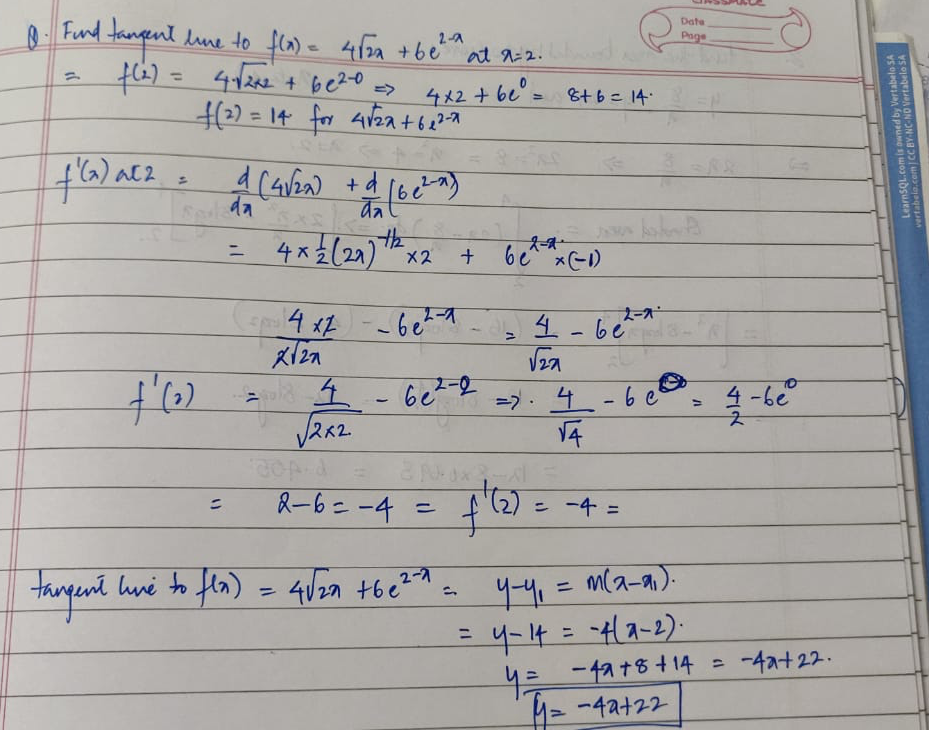 CLASSMATE
Date
Page
Q. Find tangent line to f(x) = 4√2x + 6e^{2-x} at x=2.
= f(2) = 4√2×2 + 6e^{2-0} => 4×2 + 6e^0 = 8+6 = 14.
f(2) = 14 for 4√2x + 6e^{2-x}
f'(x) at 2 = d/dx (4√2x) + d/dx (6e^{2-x})
= 4 × 1/2 (2x)^{-1/2} × 2 + 6e^{2-x} × (-1)
4×2/2√2x - 6e^{2-x} = 4/√2x - 6e^{2-x}
f'(2) = 4/√2×2 - 6e^{2-2} => 4/√4 - 6e = 4/2 - 6e^0
= 2-6 = -4 = f'(2) = -4 =
tangent line to f(x) = 4√2x + 6e^{2-x} = y-y₁ = m(x-x₁).
= y-14 = -4(x-2).
y = -4x+8+14 = -4x+22.
y = -4x+22
LearnSQL.com is owned by Vertabelo SA
vertabelo.com | CC BY-NC-ND Vertabelo SA